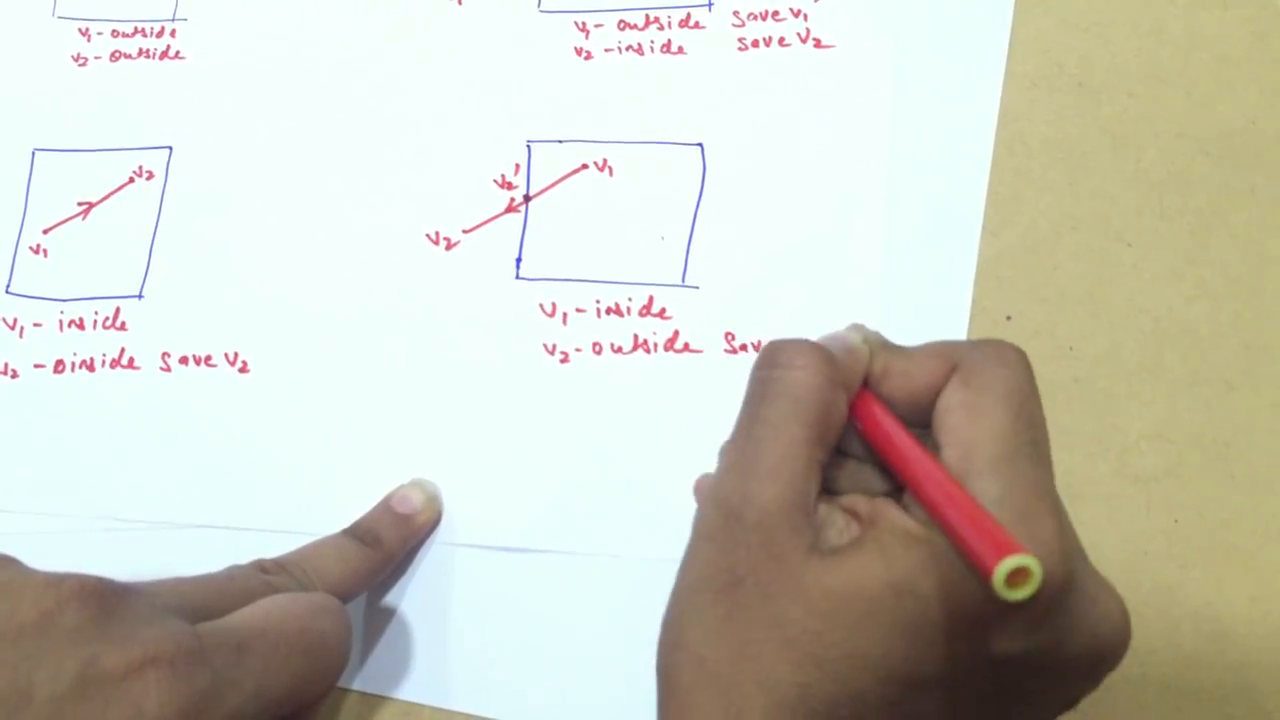 V1 - outside
V2 - outside
V1 - outside save V1'
V2 - inside save V2
V2
V1
V1 - inside
V2 - inside save V2
V1
V2'
V2
V1 - inside
V2 - outside Sav